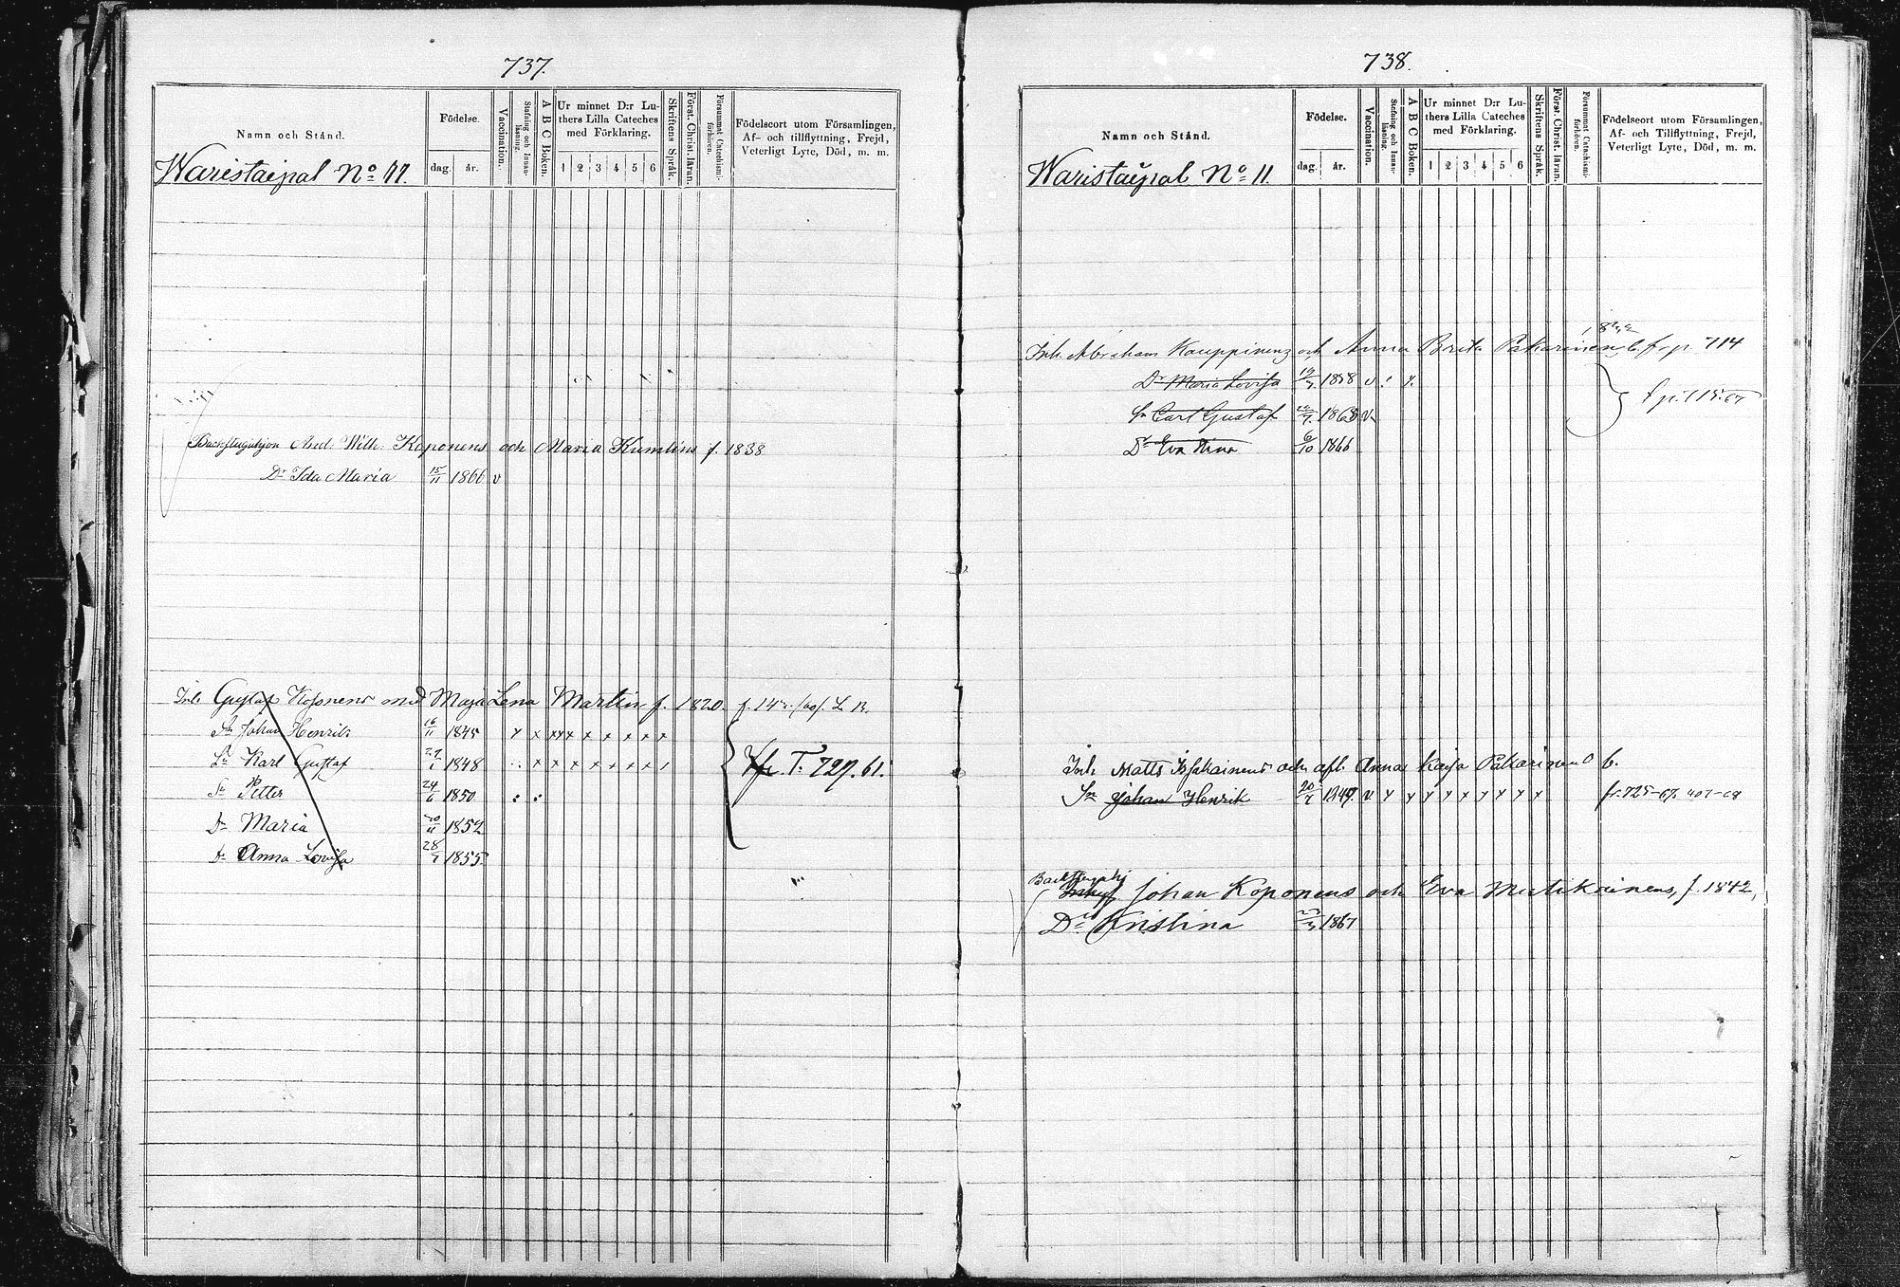 737.
Namn och Stånd.
Födelse.
dag. år.
Vaccination.
Stafning och Innan-läsning.
A B C Boken.
Ur minnet D:r Lu-
thers Lilla Cateches
med Förklaring.
1 2 3 4 5 6
Skriftens Språk.
Först. Christ. läran.
Försummat Catechismi-förhören.
Födelseort utom Församlingen,
Af- och tillflyttning, Frejd,
Veterligt Lyte, Död, m. m.
Waristaipal No 11.
And. Wilh. Koponens och Maria Kumlins f. 1838
Dr Ida Maria 15/11 1866 v
Inh Gustaf Koponens med Maja Lena Martin f. 1820.
Sn Johan Henrik 16/11 1845 x x x x x x x x x x
Sn Karl Gustaf 1848 x x x x x x x
Sn Petter 24/6 1850
Dr Maria 1852
Dr Anna Lovisa 28/ 1855.
T. 727. 61.
738.
Namn och Stånd.
Födelse.
dag. år.
Vaccination.
Stafning och Innan-läsning.
A B C Boken.
Ur minnet D:r Lu-
thers Lilla Cateches
med Förklaring.
1 2 3 4 5 6
Skriftens Språk.
Först. Christ. läran.
Försummat Catechismi-förhören.
Födelseort utom Församlingen,
Af- och Tillflyttning, Frejd,
Veterligt Lyte, Död, m. m.
Waristaipal No 11.
Inh Abraham Kauppinens och Anna Brita Pakarinen p 714
Dr Maria Lovisa 1858 v
Sn Carl Gustaf 1863 v
Dr Eva Stina 6/10 1866
Inh Matts och afl. Anna Kaisa Pakarinen b.
Sn Johan Henrik 1849. v x x x x x x x x x
Johan Koponens och Eva Mustikainens, f. 1842,
Dr Kristina 1867